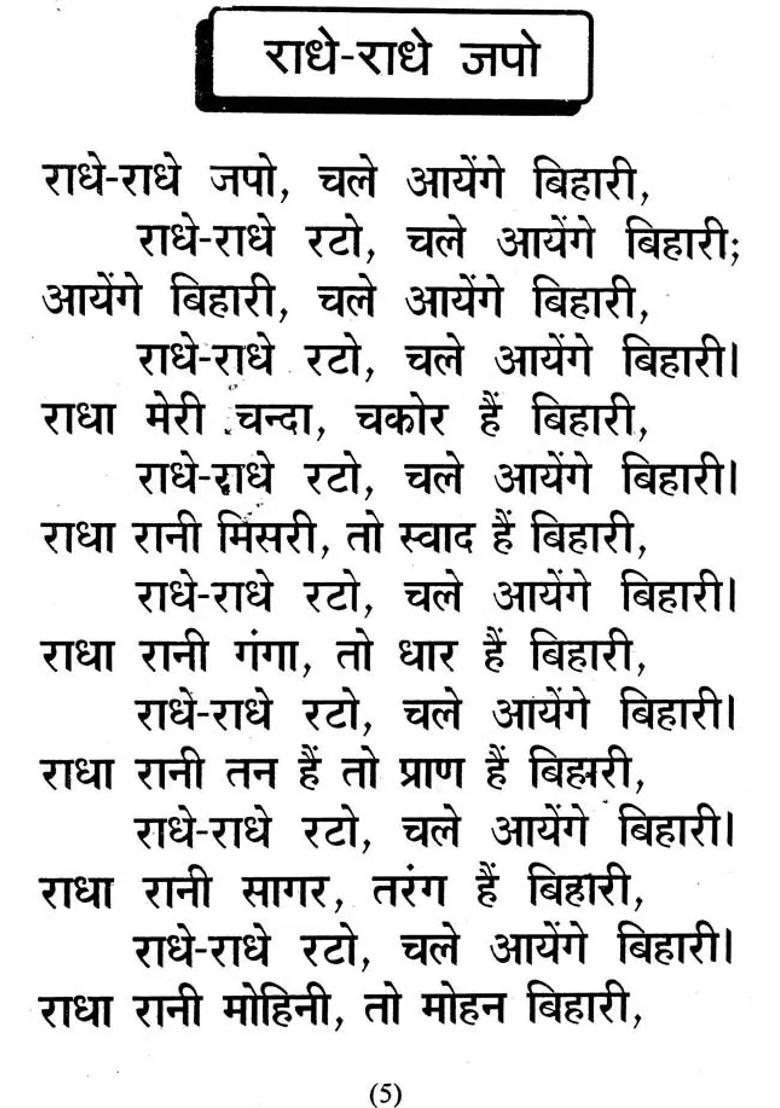 राधे-राधे जपो
राधे-राधे जपो, चले आयेंगे बिहारी,
राधे-राधे रटो, चले आयेंगे बिहारी;
आयेंगे बिहारी, चले आयेंगे बिहारी,
राधे-राधे रटो, चले आयेंगे बिहारी।
राधा मेरी चन्दा, चकोर हैं बिहारी,
राधे-राधे रटो, चले आयेंगे बिहारी।
राधा रानी मिसरी, तो स्वाद हैं बिहारी,
राधे-राधे रटो, चले आयेंगे बिहारी।
राधा रानी गंगा, तो धार हैं बिहारी,
राधे-राधे रटो, चले आयेंगे बिहारी।
राधा रानी तन हैं तो प्राण हैं बिहारी,
राधे-राधे रटो, चले आयेंगे बिहारी।
राधा रानी सागर, तरंग हैं बिहारी,
राधे-राधे रटो, चले आयेंगे बिहारी।
राधा रानी मोहिनी, तो मोहन बिहारी,
(5)